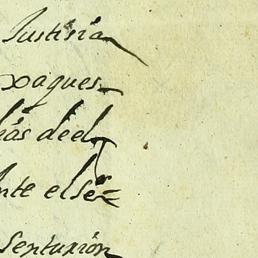 Justiçia
xaques
más de el
nte el se=
sentuxion